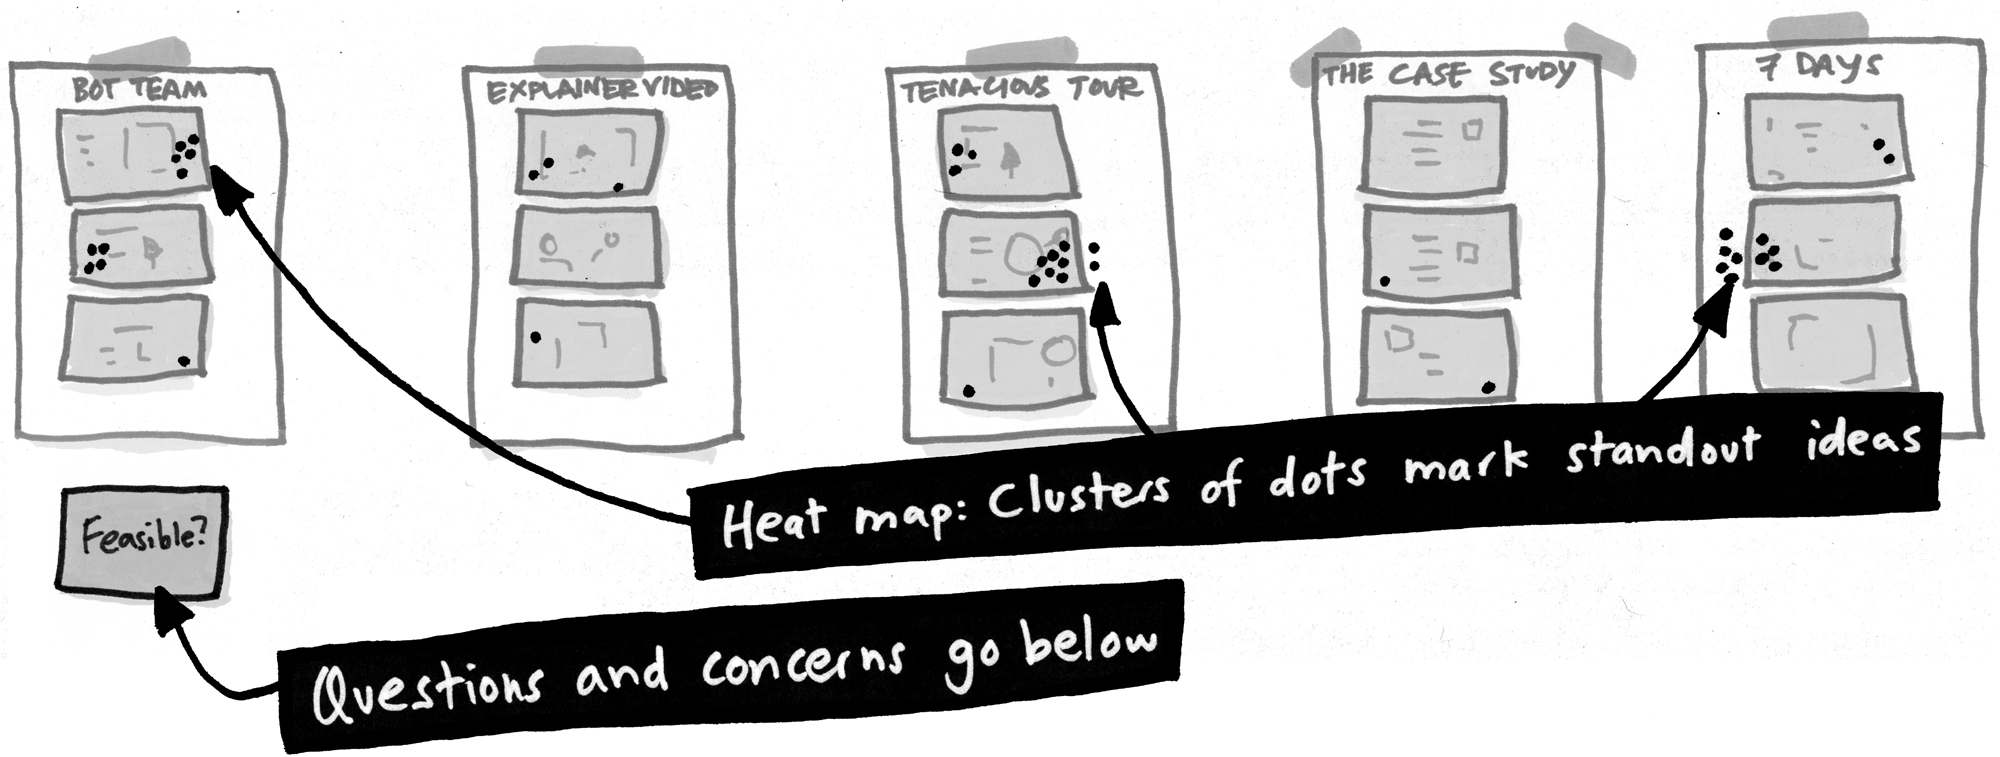 BOT TEAM
EXPLAINER VIDEO
TENACIOUS TOUR
THE CASE STUDY
7 DAYS
Heat map: Clusters of dots mark standout ideas
Feasible?
Questions and concerns go below